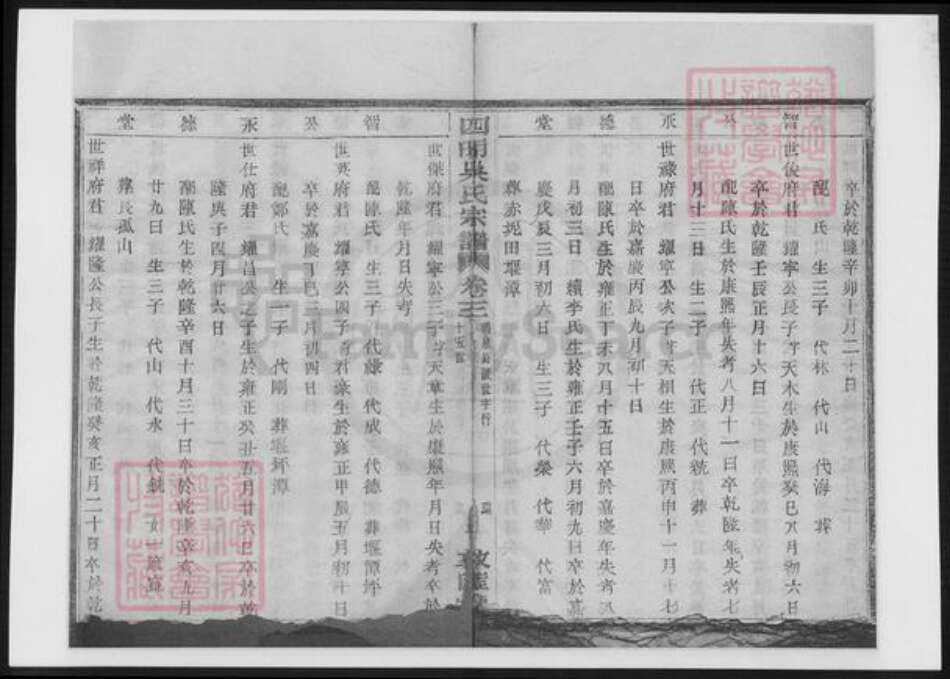 卒於乾隆辛卯十月二十日
配 氏 生三子 代林 代山 代海 葬
智
世俊府君 耀寧公長子字天木生於康熙癸巳八月初六日
卒於乾隆壬辰正月十六日
公
配陳氏生於康熙年失考八月十一日卒乾隆年失考七
月十三日 生二子 代正 代統 葬
永
世祿府君 耀寧公次子字天相生於康熙丙申十一月十七
日卒於嘉慶丙辰九月初十日
德
配陳氏生於雍正丁未八月十五日卒於嘉慶年失考八
月初三日 續李氏生於雍正壬子六月初九日卒於嘉
堂
慶戊辰三月初六日 生三子 代榮 代華 代富
葬赤坭田堰潭
四明吳氏宗譜 卷三
十五世
敦睦堂
世傑府君 耀寧公三子字天章生於康熙年月日失考卒於
乾隆年月日失考
智
配陳氏 生三子 代祿 代成 代德 葬堰潭坪
世英府君 耀寧公四子字君豪生於雍正甲辰五月初十日
公
卒於嘉慶丁巳三月初四日
配鄭氏 生一子 代剛 葬堰坪潭
永
世仕府君 耀昌公之子生於雍正癸丑五月廿六日卒於乾
隆庚子四月廿六日
德
配陳氏生於乾隆辛酉十月三十日卒於乾隆辛亥九月
廿九日 生三子 代山 代永 代銑 女一
堂
葬長孤山
世祥府君 耀隆公長子生於乾隆癸亥正月二十日卒於乾
FamilySearch